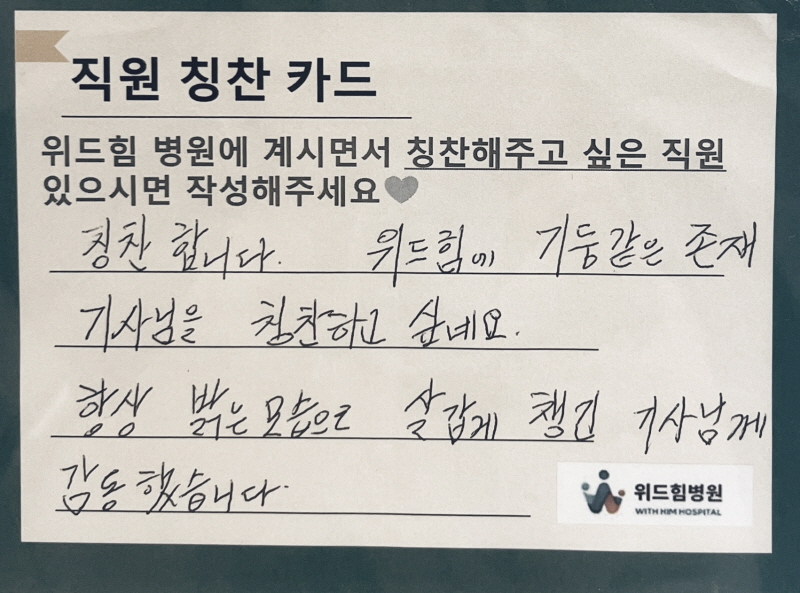 직원 칭찬 카드
위드힘 병원에 계시면서 칭찬해주고 싶은 직원
있으시면 작성해주세요
칭찬 합니다. 위드힘에 기둥같은 존재
기사님을 칭찬하고 싶네요.
항상 밝은 모습으로 살갑게 챙긴 기사님께
감동했습니다.
위드힘병원
WITH HIM HOSPITAL